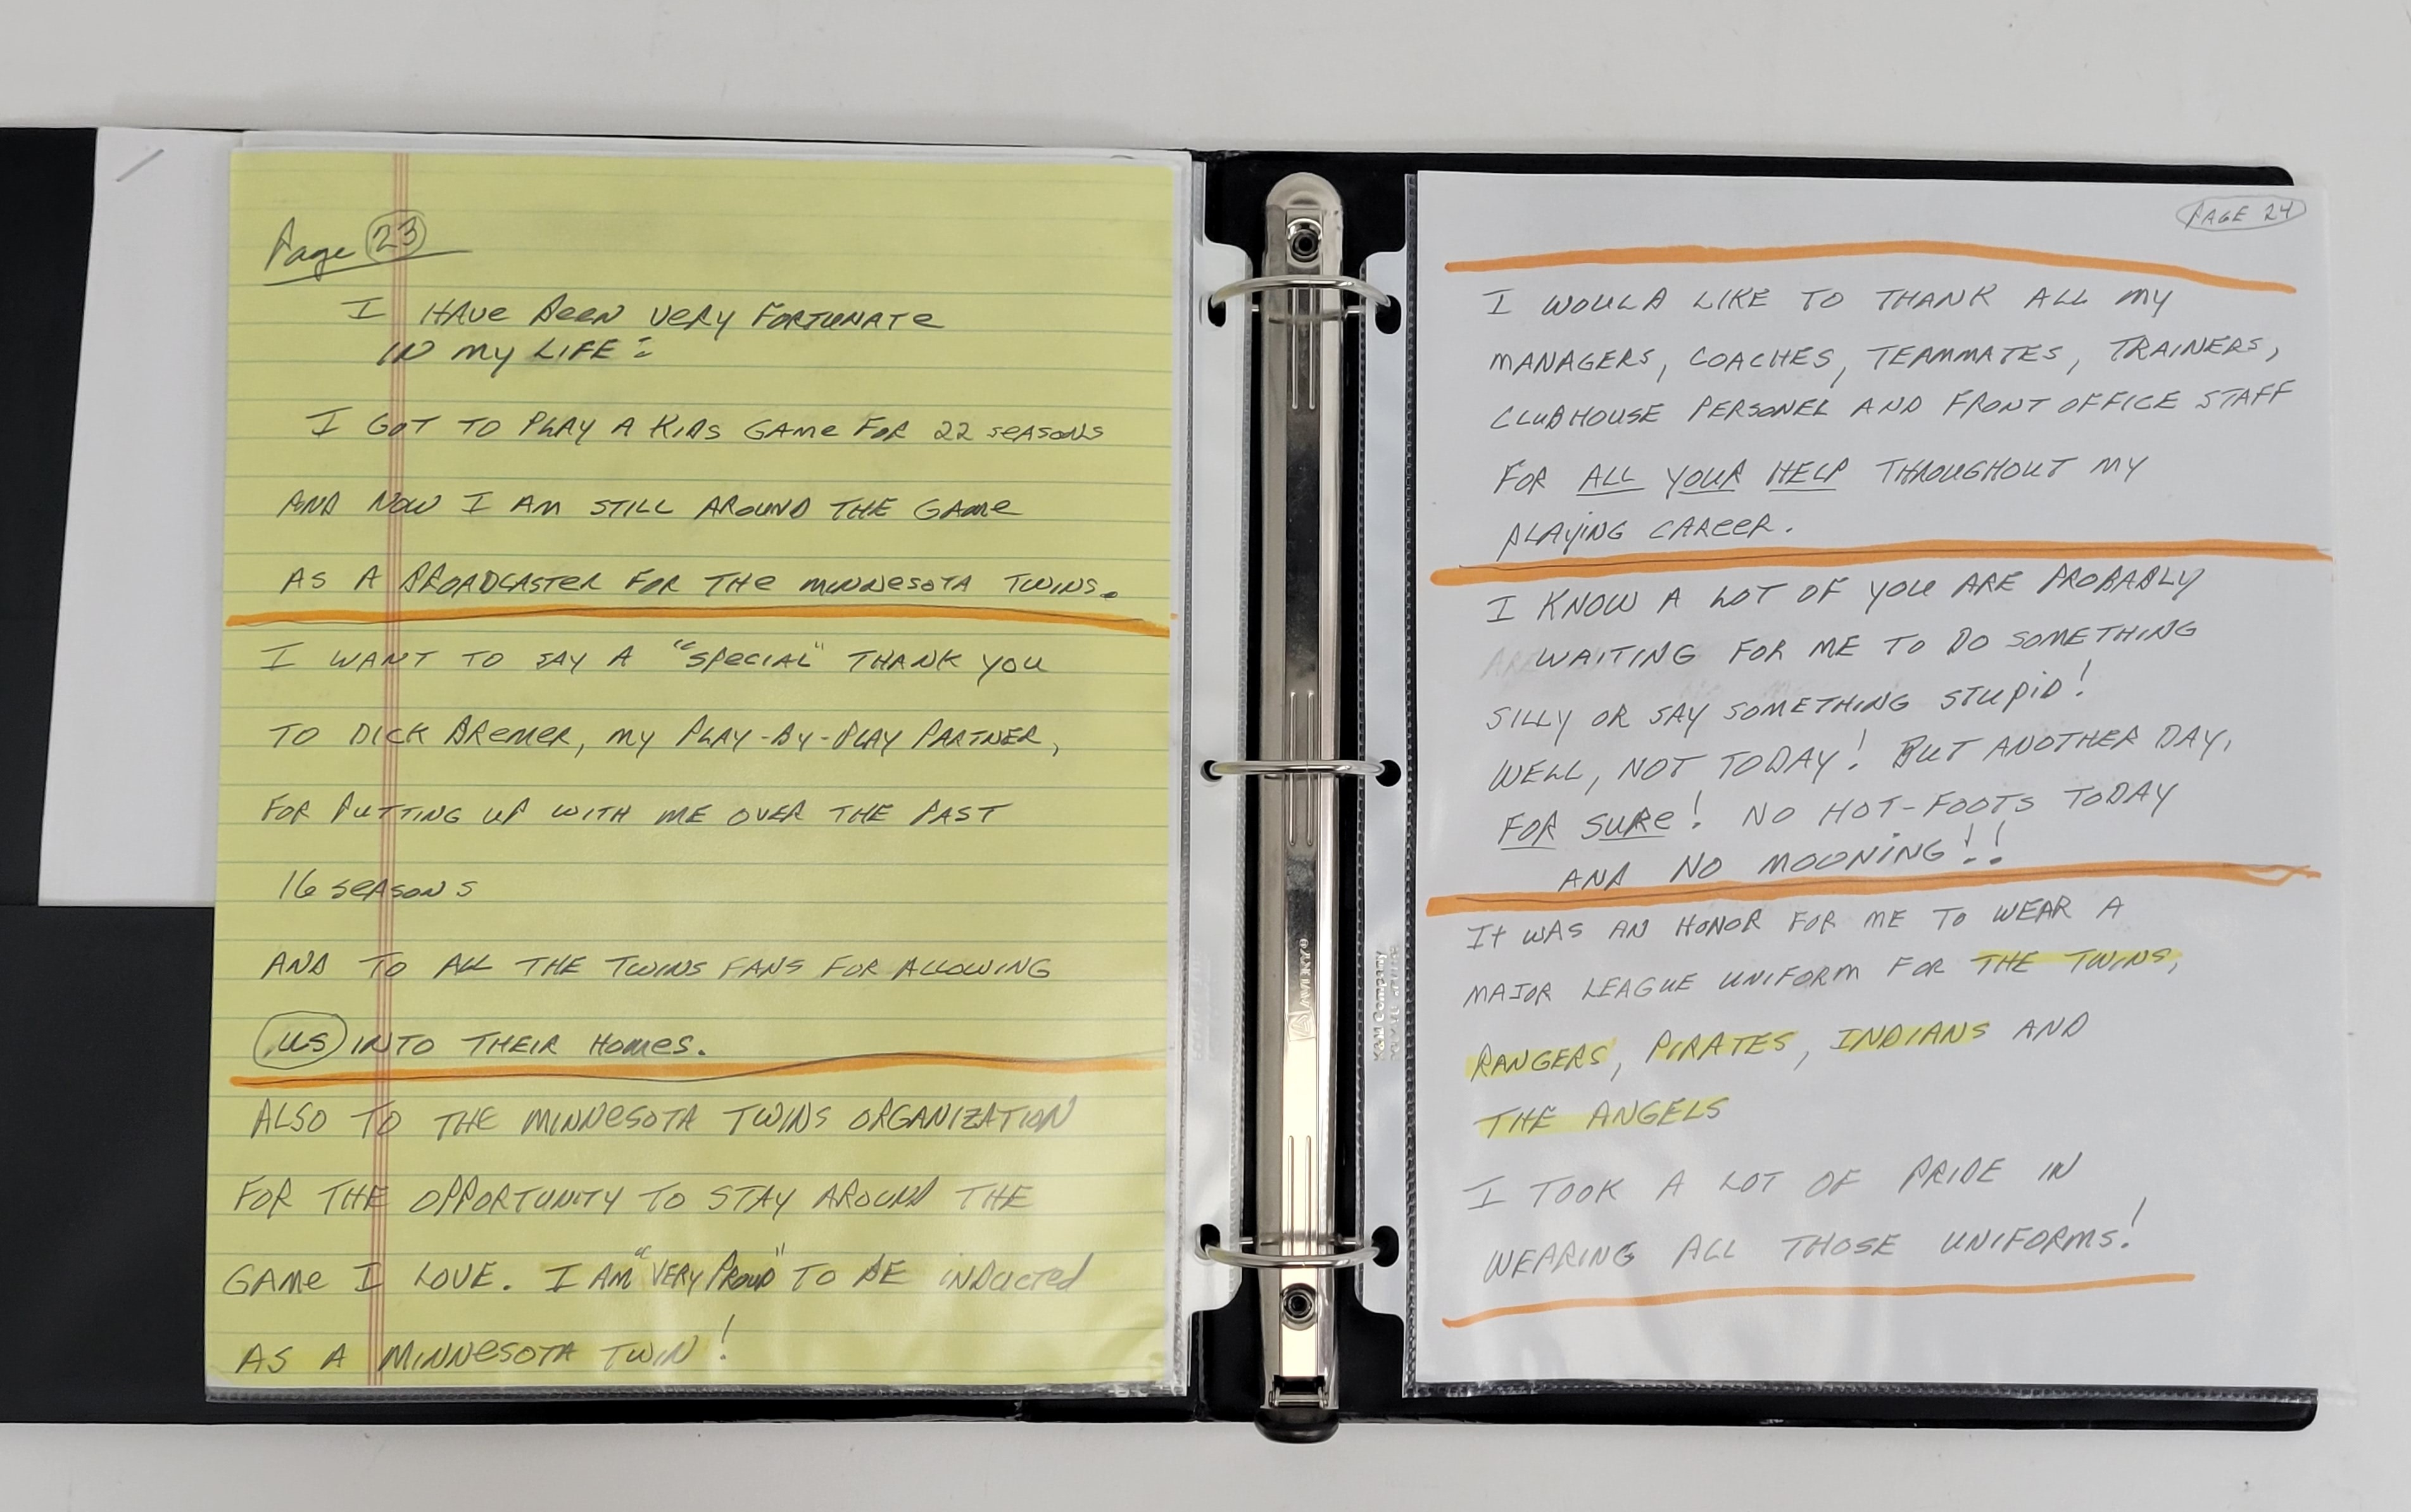 Page 23
I HAVE BEEN VERY FORTUNATE
IN MY LIFE:
I GOT TO PLAY A KIDS GAME FOR 22 SEASONS
AND NOW I AM STILL AROUND THE GAME
AS A BROADCASTER FOR THE MINNESOTA TWINS.
I WANT TO SAY A "SPECIAL" THANK YOU
TO DICK BREMER, MY PLAY-BY-PLAY PARTNER,
FOR PUTTING UP WITH ME OVER THE PAST
16 SEASONS
AND TO ALL THE TWINS FANS FOR ALLOWING
US INTO THEIR HOMES.
ALSO TO THE MINNESOTA TWINS ORGANIZATION
FOR THE OPPORTUNITY TO STAY AROUND THE
GAME I LOVE. I AM "VERY PROUD" TO BE INDUCTED
AS A MINNESOTA TWIN!
PAGE 24
I WOULD LIKE TO THANK ALL MY
MANAGERS, COACHES, TEAMMATES, TRAINERS,
CLUBHOUSE PERSONEL AND FRONT OFFICE STAFF
FOR ALL YOUR HELP THROUGHOUT MY
PLAYING CAREER.
I KNOW A LOT OF YOU ARE PROBABLY
WAITING FOR ME TO DO SOMETHING
SILLY OR SAY SOMETHING STUPID!
WELL, NOT TODAY! BUT ANOTHER DAY,
FOR SURE! NO HOT-FOOTS TODAY
AND NO MOONING!!
IT WAS AN HONOR FOR ME TO WEAR A
MAJOR LEAGUE UNIFORM FOR THE TWINS,
RANGERS, PIRATES, INDIANS AND
THE ANGELS
I TOOK A LOT OF PRIDE IN
WEARING ALL THOSE UNIFORMS!